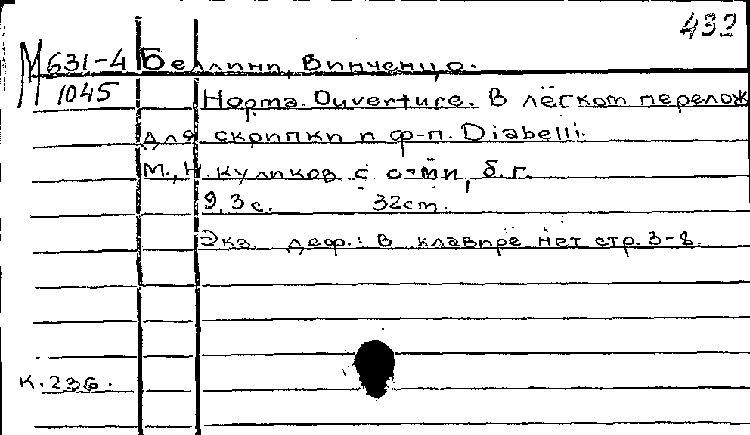 433
М 631-4 Беллини, Винченцо.
1045 Норма. Ouverture. В лёгком перелож
для скрипки и ф-п. Diabelli.
М., Н. Куликов с с-ми, б.г.
9, 3 с. 32 cm.
Экз. деф.: в клавире нет стр. 3-8.
К. 236.